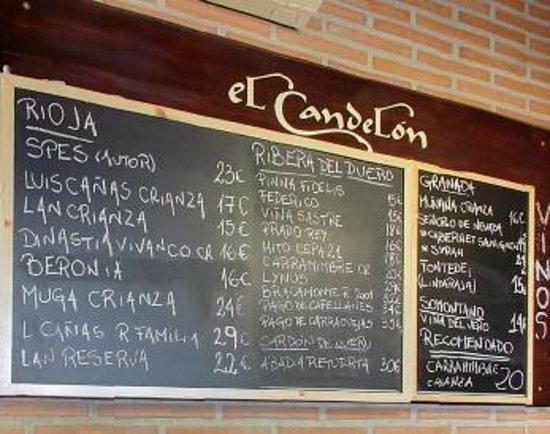 el Candelón
RIOJA
SPES (AUTOR) 23€
LUIS CAÑAS CRIANZA 17€
LAN CRIANZA 15€
DINASTIA VIVANCO CR 16€
BERONIA 16€
MUGA CRIANZA 24€
L CAÑAS R FAMILIA 29€
LAN RESERVA 22€
RIBERA DEL DUERO
PINNA FIDELIS 15€
FEDERICO
VIÑA SASTRE
PRADO REY
MITO CEPA 21
CARRAMIMBRE CR
LYNUS
BRACAMONTE R. 2001
PAGO DE CAPELLANES
PAGO DE CARRAOVEJAS
ABADIA RETUERTA 30€
GRANADA
MUÑANA CRIANZA 16€
SEÑORIO DE NEVADA
* CABERNET SAUVIGNON
* SYRAH
FONTEDEI
(LINDARAJA) 15€
SOMONTANO
VIÑA DEL VERO 14€
RECOMENDADO
CARRAMIMBRE
CRIANZA 20
VINOS